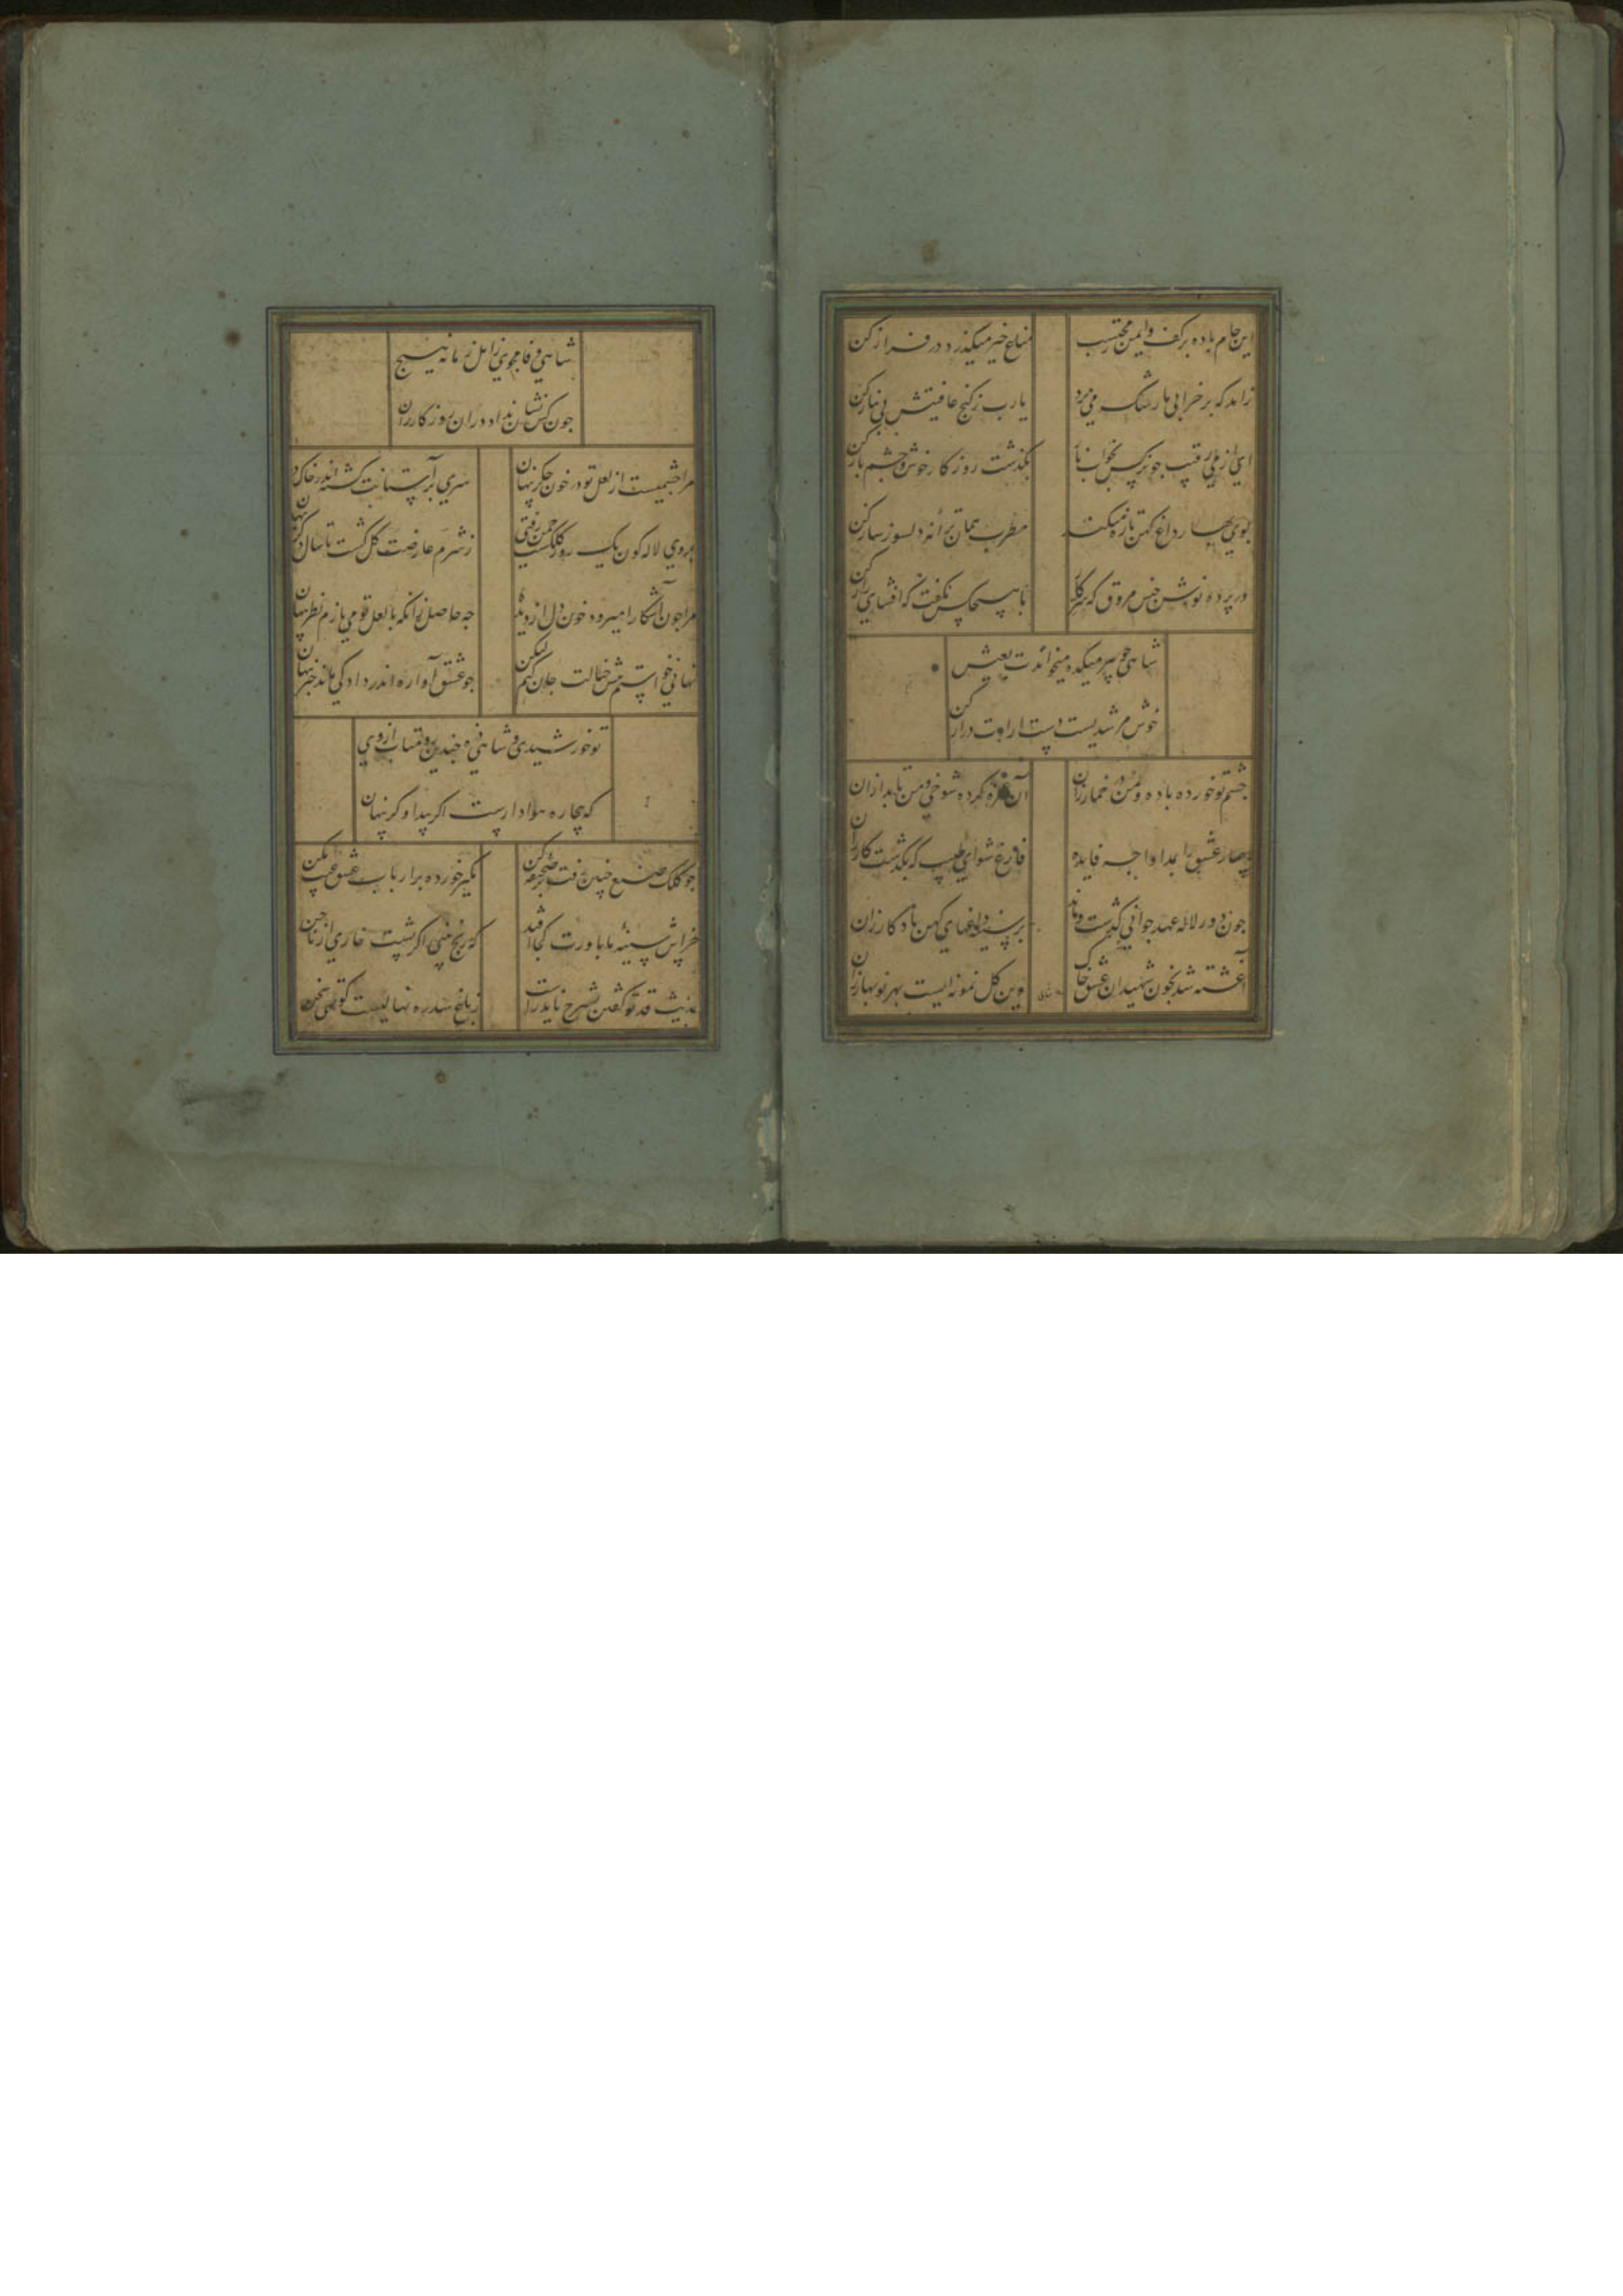 این جام باده بر کف و ایمن ز محتسب
مناع خیر میگذرد در فراز کن
زاهد که بر خرابی ما رشک می برد
یا رب ز کنج عافیتش بی نیاز کن
ای از پی رقیب جو نرکس بخواب ناز
بکذشت روزکار خوش و جشم باز کن
بوی بهار داغ کهن تازه میکند
مطرب همان ترانه دلسوز ساز کن
در پرده نوش خبس مروق که سر کار
با هیچکس نکفت که افشای راز کن
شاهی جو پیر میکده میخواندت بعیش
خوش مرشدیست دست ارادت دراز کن
جشم تو خورده باده و من در خمار ازان
آن غمزه کرده شوخی و من باید ازان
بیمار عشق را بمداوا جه فایده
فارغ شو ای طبیب که بکذشت کار ازان
جون دور لاله عهد جوانی کذشت و ماند
بر سینه داغهای کهن یادکار ازان
آغشته شد بخون شهیدان عشق خاک
وین کل نمونه ایست بهر نوبهار ازان
شاهی وفا مجوی ز اهل زمانه هیچ
جون کس نشان نداد دران روزکار ازان
مرا جشمیست از لعل تو در خون جکر پنهان
سری بر آستانت کشته اندر خاک در پنهان
بروی لاله کون یک روز کلکشت جمن رفتی
ز شرم عارضت کل کشت تا سال دکر پنهان
مرا جون آشکارا میرود خون دل از دیده
جه حاصل زانکه با لعل تو می بازم نظر پنهان
نهانی خواستم پیش خیالت جان کنم لیکن
جو عشق آوازه اندر داد کی ماند خبر پنهان
تو خورشیدی و شاهی ذره جندین رو متاب از وی
که بیجاره هوادارست اکر پیدا و کر پنهان
جو کلک صنع جنین رفت
مکیر خورده بر ارباب عشق عیب مکن
خراش سینه ما باورت کجا افتد
که رنج نیی اکر نیست خاری از
حدیث قد تو کفتن بشرح ناید راست
ز باغ سدره نهالیست کوتهی سخن